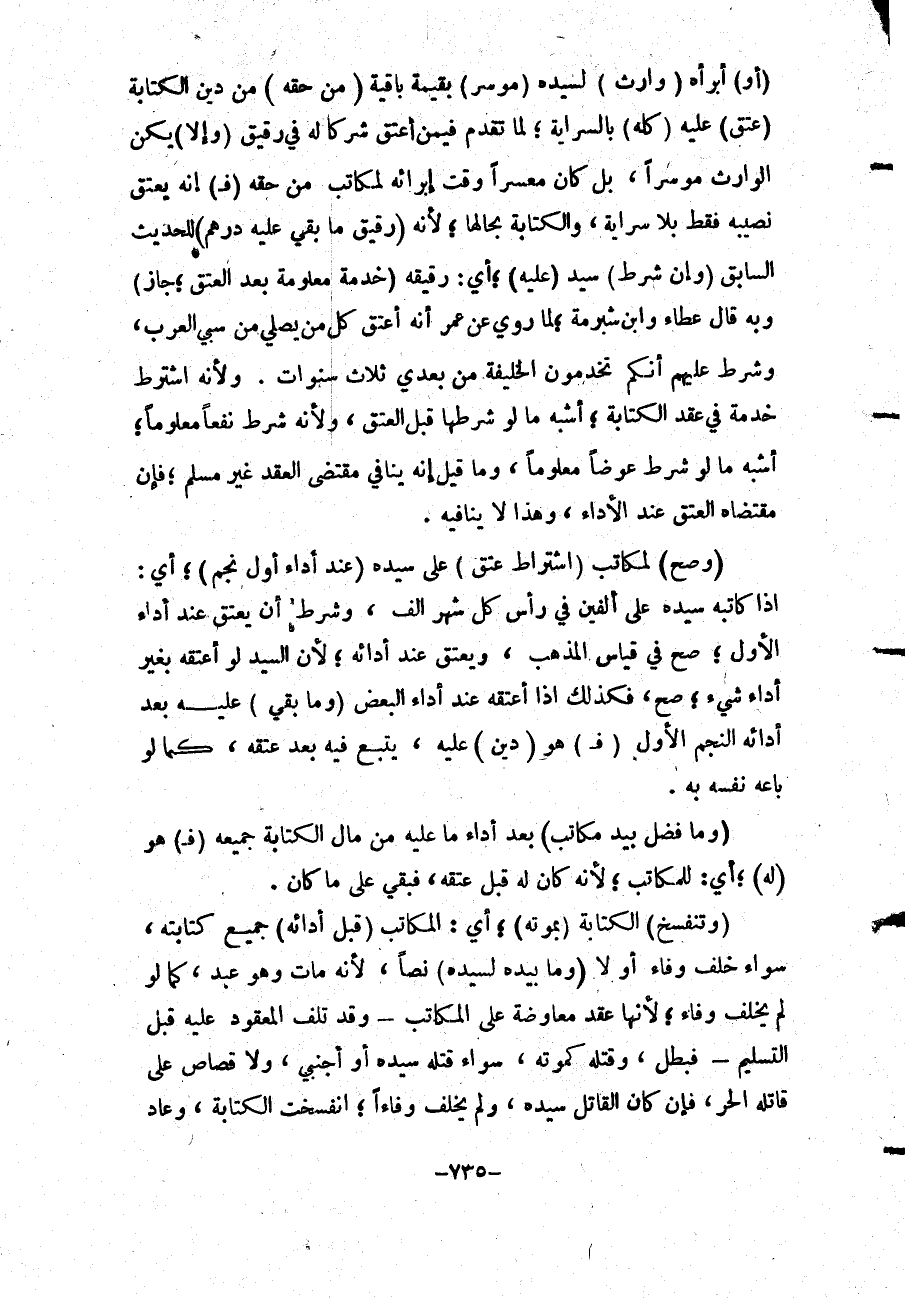 (أو) أبرأه ( وارث ) لسيده (موسر) بقيمة باقية ( من حقه ) من دين الكتابة
(عتق) عليه (كله) بالسراية ؛ لما تقدم فيمن أعتق شركا له في رقيق (وإلا) يكن
الوارث موسراً ، بل كان معسراً وقت إبرائه لمكاتب من حقه (فـ) انه يعتق
نصيبه فقط بلا سراية ، والكتابة بحالها ؛ لأنه (رقيق ما بقي عليه درهم) للحديث
السابق (وإن شرط) سيد (عليه) ؛ أي : رقيقه (خدمة معلومة بعد العتق ؛ جاز)
وبه قال عطاء وابن شبرمة ؛ لما روي عن عمر أنه أعتق كل من يصلي من سبي العرب ،
وشرط عليهم أنكم تخدمون الخليفة من بعدي ثلاث سنوات . ولأنه اشترط
خدمة في عقد الكتابة ؛ أشبه ما لو شرطها قبل العتق ، ولأنه شرط نفعاً معلوماً ؛
أشبه ما لو شرط عوضاً معلوماً ، وما قيل إنه ينافي مقتضى العقد غير مسلم ؛ فإن
مقتضاه العتق عند الأداء ، وهذا لا ينافيه .
(وصح) لمكاتب (اشتراط عتق ) على سيده (عند أداء أول نجم) ؛ أي :
اذا كاتبه سيده على ألفين في رأس كل شهر الف ، وشرط أن يعتق عند أداء
الأول ؛ صح في قياس المذهب ، ويعتق عند أدائه ؛ لأن السيد لو أعتقه بغير
أداء شيء ؛ صح ، فكذلك اذا أعتقه عند أداء البعض (وما بقي ) عليـــه بعد
أدائه النجم الأول ( فـ ) هو ( دين ) عليه ، يتبع فيه بعد عتقه ، كما لو
باعه نفسه به .
(وما فضل بيد مكاتب) بعد أداء ما عليه من مال الكتابة جميعه (فـ) هو
(له) ؛ أي : للمكاتب ؛ لأنه كان له قبل عتقه ، فبقي على ما كان .
(وتنفسخ) الكتابة (بموته) ؛ أي : المكاتب (قبل أدائه) جميع كتابته ،
سواء خلف وفاء أو لا (وما بيده لسيده) نصاً ، لأنه مات وهو عبد ، كما لو
لم يخلف وفاء ؛ لأنها عقد معاوضة على المكاتب – وقد تلف المعقود عليه قبل
التسليم – فبطل ، وقتله كموته ، سواء قتله سيده أو أجنبي ، ولا قصاص على
قاتله الحر ، فإن كان القاتل سيده ، ولم يخلف وفاءاً ؛ انفسخت الكتابة ، وعاد
–٧٣٥–